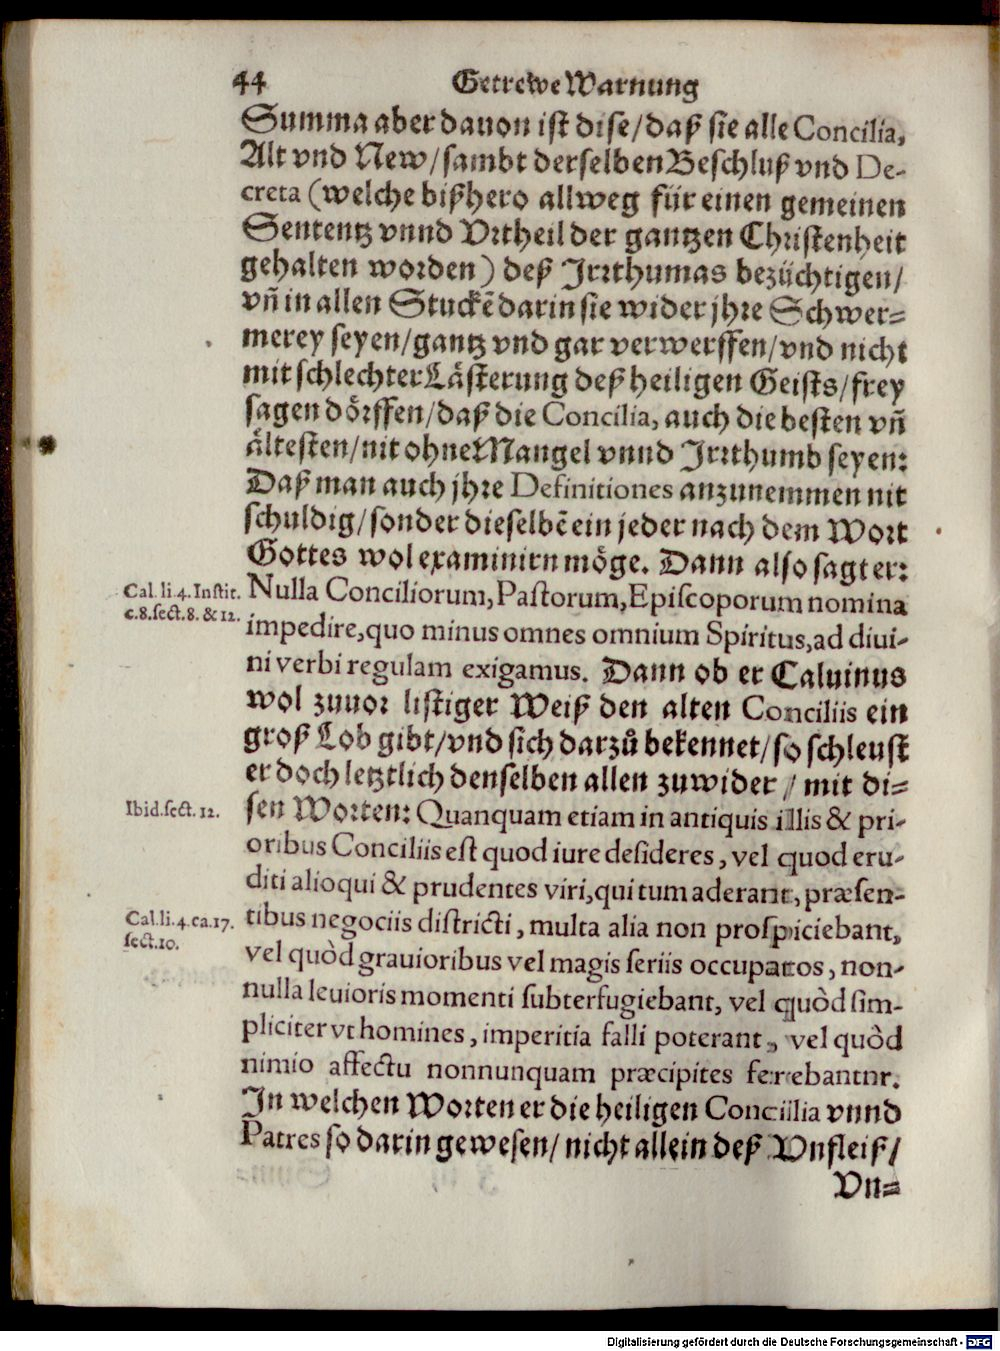 44 Getrewe Warnung
Summa aber dauon ist dise/daß sie alle Concilia,
Alt vnd New/sambt derselben Beschluß vnd De-
creta (welche bißhero allweg für einen gemeinen
Sententz vnnd Vrtheil der gantzen Christenheit
gehalten worden) deß Irrthumas bezüchtigen/
vñ in allen Stuckẽ darin sie wider jhre Schwer-
merey seyen/gantz vnd gar verwerffen/vnd nicht
mit schlechter Lästerung deß heiligen Geists/frey
sagen dörffen/daß die Concilia, auch die besten vñ
ältesten/nit ohne Mangel vnnd Irrthumb seyen:
Daß man auch jhre Definitiones anzunemmen nit
schuldig/sonder dieselbẽ ein jeder nach dem Wort
Gottes wol examinirn möge. Dann also sagt er:
Cal. li. 4. Instit.
c. 8. sect. 8. & 12.
Nulla Conciliorum, Pastorum, Episcoporum nomina
impedire, quo minus omnes omnium Spiritus, ad diui-
ni verbi regulam exigamus. Dann ob er Caluinus
wol zuuor listiger Weiß den alten Conciliis ein
groß Lob gibt/vnd sich darzů bekennet/so schleust
er doch letztlich denselben allen zuwider/mit di-
Ibid. sect. 12.
sen Worten: Quanquam etiam in antiquis illis & pri-
oribus Conciliis est quod iure desideres, vel quod eru-
diti alioqui & prudentes viri, qui tum aderant, præsen-
Cal. li. 4. ca. 17.
sect. 10.
tibus negociis districti, multa alia non prospiciebant,
vel quòd grauioribus vel magis seriis occupatos, non-
nulla leuioris momenti subterfugiebant, vel quòd sim-
pliciter vt homines, imperitia falli poterant, vel quòd
nimio affectu nonnunquam præcipites ferebantnr.
In welchen Worten er die heiligen Conciilia vnnd
Patres so darin gewesen/nicht allein deß Vnfleiß/
Vn-
Digitalisierung gefördert durch die Deutsche Forschungsgemeinschaft - DFG